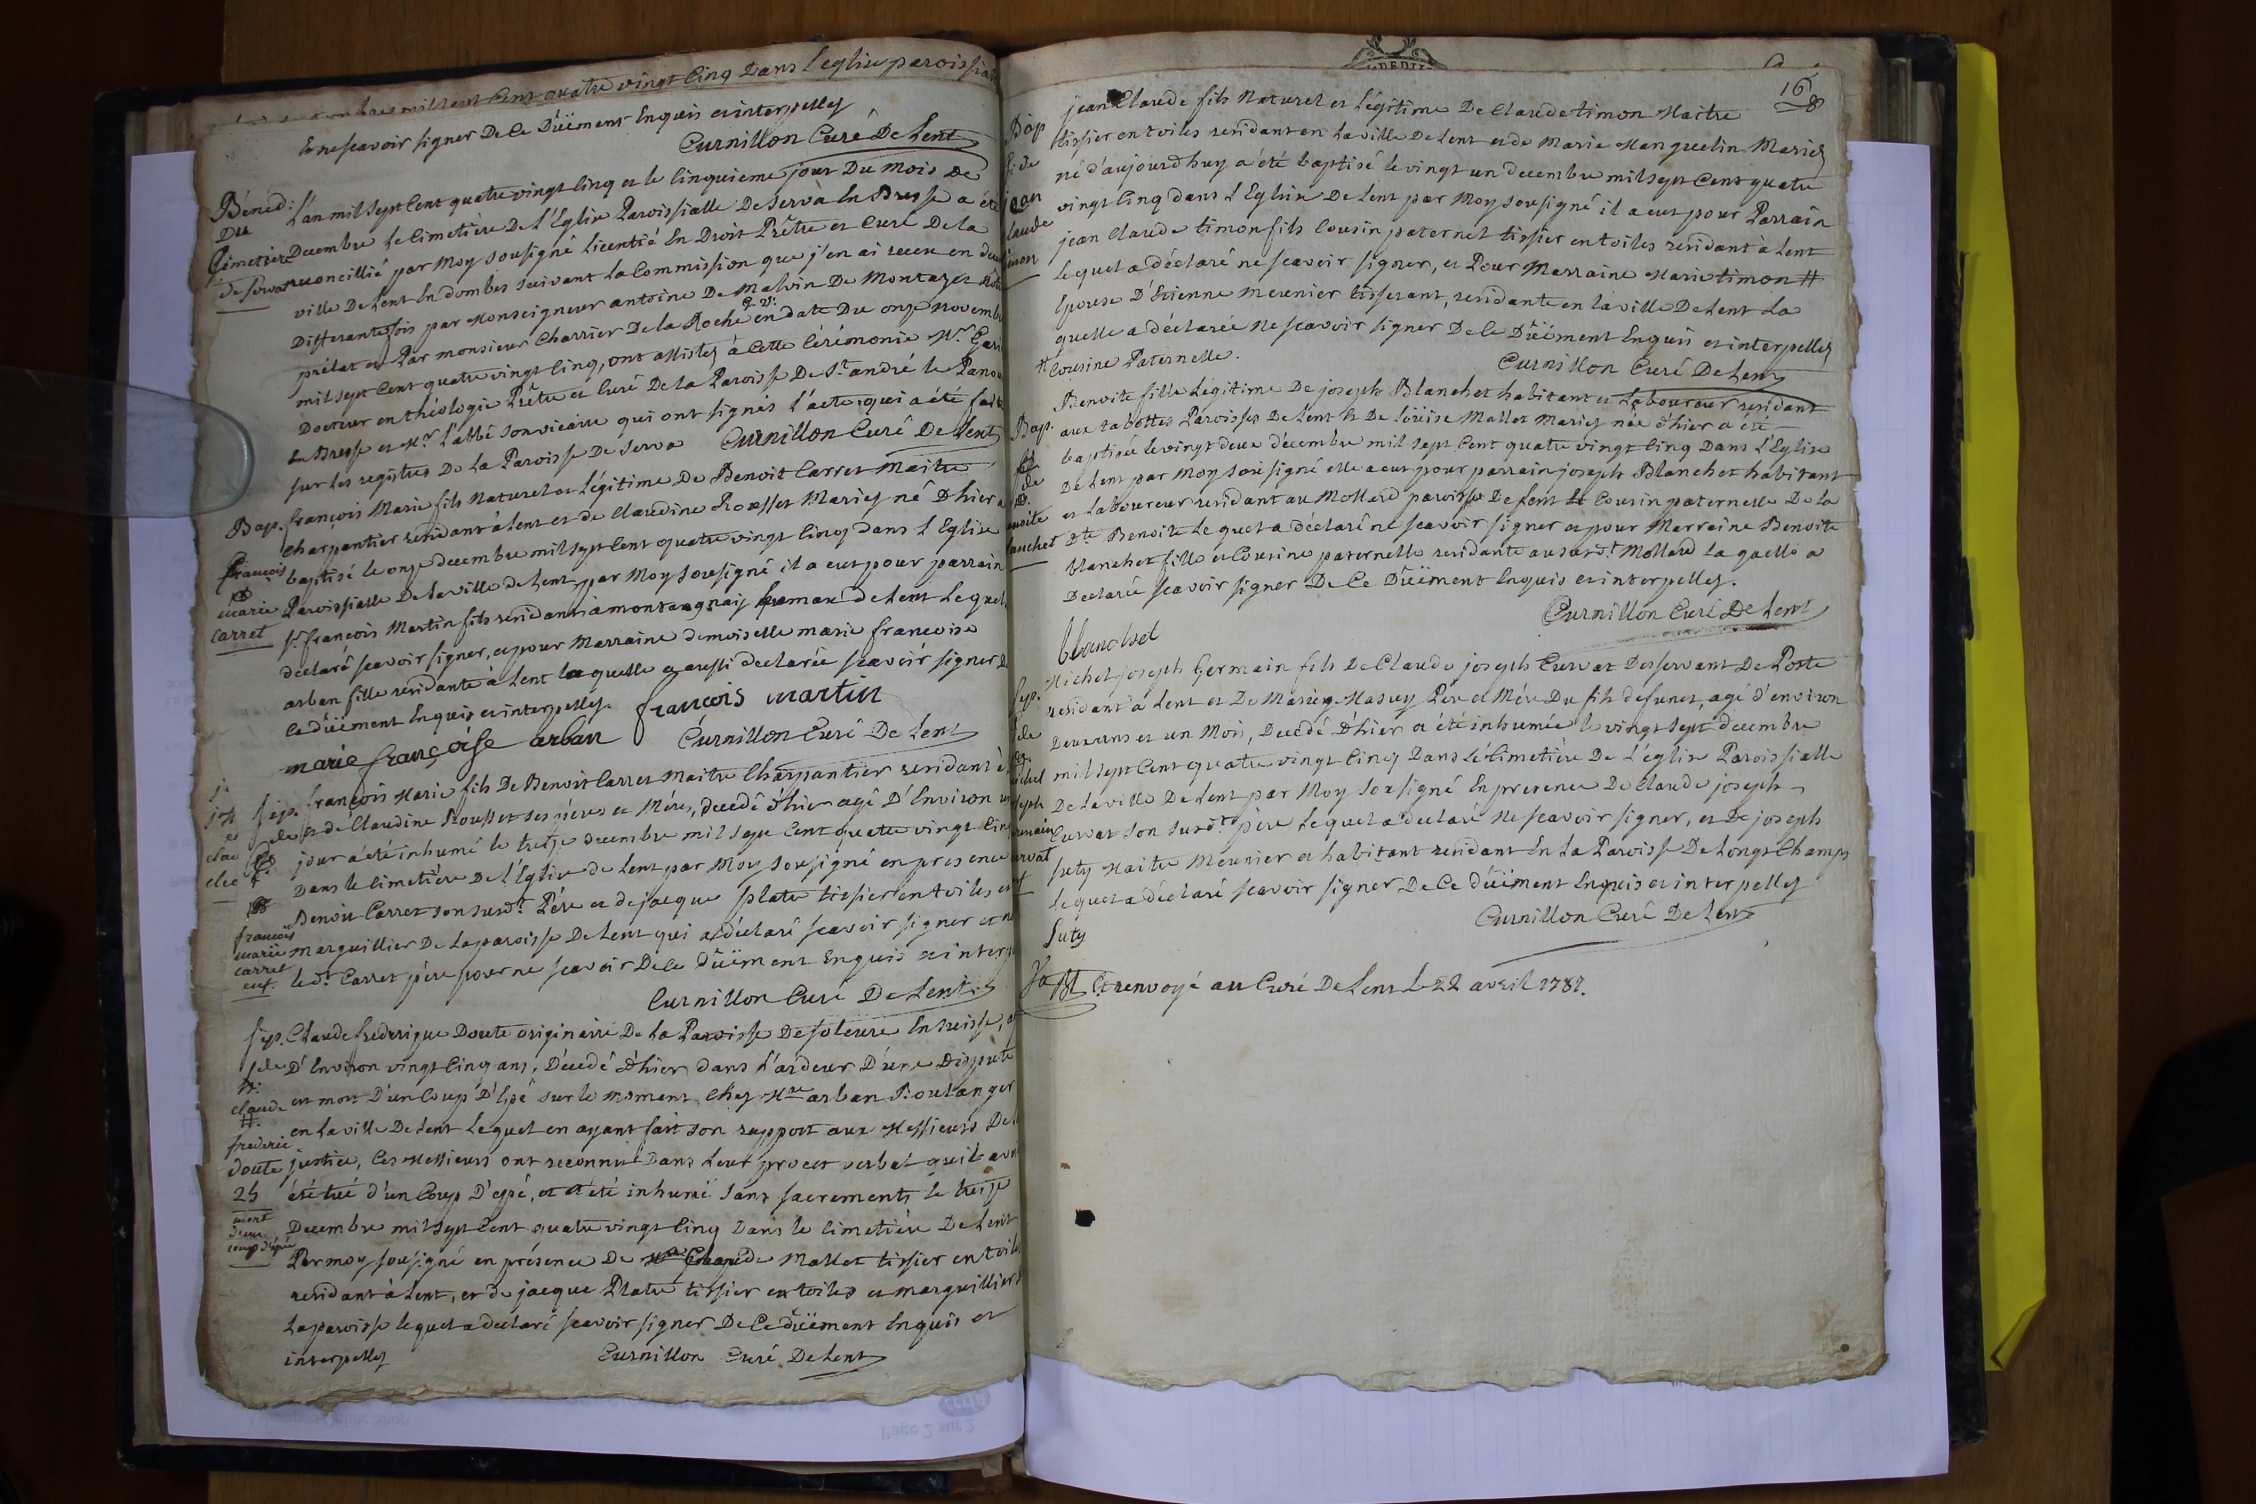 mil sept Cent quatre vingt Cinq Dans l'eglise paroissia
Et ne scavoir signer De Ce Dûëment Enquis et interpellez
Curnillon Curé De Lent
Bénéd: L'an mil sept Cent quatre vingt Cinq et le Cinquieme jour Du mois De
Du
Cimetiere Decembre le Cimetiére De L'Eglise Paroissialle De Serva En Bresse a été
de servas reconcillié par Moy sousigné licentié En Droit Prêtre et Curé De la
ville De Lent En dombes suivant la Commission que j'en ai recue en deux
Differantes fois par Monseigneur antoine De Malvin De Montazet
prélat et Par monsieur Charrier De la Roche en date Du onze novembre
mil sept Cent quatre vingt Cinq, ont assistez à Cette Cérémonie Mr.
Docteur en théologie Prêtre et Curé De la Paroisse De St. andré le
En Bresse et Mr. l'abbé son vicaire qui ont signés l'acte qui a été fait
sur les registres De la Paroisse De Serva Curnillon Curé De Lent
Bap. françois Marie fils Naturel et Légitime De Benoit Carret Maitre
Charpantier residant à Lent et de Claudine Rousset Mariez né D'hier a
françois baptisé le onze decembre mil sept Cent quatre vingt Cinq dans l'Eglise
marie Paroissialle De la ville de Lent par Moy sousigné il a eut pour parrain
Carret Sr. françois Martin fils residant à montagnaz De Lent le quel
declaré scavoir signer, et pour Marraine demoiselle marie françoise
arban fille residante à Lent la quelle a aussi declarée scavoir signer De
Ce dûëment Enquis et interpellez. françois martin
marie françoise arban Curnillon Curé De Lent
Sep. françois Marie fils De Benoit Carret Maitre Charpantier residant à
de et de Claudine Rousset ses péres et Mére, decedé d'hier agé D'Environ un
jour a été inhumé le treize decembre mil sept Cent quatre vingt Cinq
Dans le Cimetière De l'Eglise de Lent par Moy sousigné en presence
Benoit Carret son susdt. Pére et de jacque Platre tissier en toiles et
françois
marie marguillier De la paroisse De Lent qui a déclaré scavoir signer et
carret
enf. le dt. Carret pére pour ne scavoir De Ce dûëment Enquis et interp
Curnillon Curé De Lent
Sep. Claude frederique Doute originaire De la Paroisse De soleure En suisse,
de D'Environ vingt Cinq ans, Décedé d'hier dans l'ardeur D'une Dispute
claude et mort D'un Coup D'Epé sur le moment Chez Me arban Boulanger
frederic en la ville De Lent Lequel en ayant fait son rapport aux Messieurs De
doute justice, Ces Messieurs ont reconnu Dans leur procet verbal quil avoi
25 été tué d'un Coup D'epé, et a été inhumé sans sacrements le treize
mort
d'un Decembre mil sept Cent quatre vingt Cinq Dans le Cimetiére De Lent
coup d'épée
Par moy sousigné en présence De Claude Mallet tissier en toiles
residant à Lent, et de jacque Platre tissier en toiles et marguillier
La paroisse le quel a declaré scavoir signer De Ce dûëment Enquis et
interpellez Curnillon Curé De Lent
16
8
Bap jean Claude fils Naturel et Légitime De Claude timon Maitre
tissier en toiles residant en la ville De Lent et de Marie Manguelin Mariez
de né d'aujourdhuy a été baptisé le vingt un decembre mil sept Cent quatre
jean vingt Cinq dans L'Eglise De Lent par Moy sousigné il a eut pour Parrain
claude jean Claude timon fils Cousin paternel tissier en toiles residant à Lent
timon lequel a déclaré ne scavoir signer, et Pour Marraine Marie timon #
Epouse D'Etienne meunier tisserant, residante en la ville De Lent La
quelle a déclarée Ne scavoir signer De Ce Dûëment Enquis et interpellez
# Cousine Paternelle. Curnillon Curé De Lent
Benoite fille Légitime De joseph Blanchet habitant et Laboureur residant
Bap. aux rabottes Paroisses De Lent et De Loüise Mallet Mariez née d'hier a été
baptisée le vingt deux décembre mil sept Cent quatre vingt Cinq Dans L'Eglise
de De Lent par Moy sousigné elle a eut pour parrain joseph Blanchet habitant
et Laboureur residant au Mollard paroisse De Lent Cousin paternelle De la
Benoite Dte Benoite Le quel a déclaré ne scavoir signer et pour Marraine Benoite
blanchet blanchet fille et Cousine paternelle residante au susdt. Mollard la quelle a
Declarée scavoir signer De Ce Dûëment Enquis et interpellez.
Curnillon Curé De Lent
blanchet
Michel joseph Germain fils De Claude joseph Curvat Desservant De Poste
Sep. residant à Lent et De Marie Masuy Pére et Mére Du fils defunct, agé d'environ
de Deux ans et un Mois, Decedé D'hier a été inhumée le vingt sept decembre
michel mil sept Cent quatre vingt Cinq Dans le Cimetiére De L'église Paroissialle
joseph De la ville De Lent par Moy sousigné En presence De Claude joseph
germain Curvat son susdt. pére lequel a declaré ne scavoir signer, et De joseph
curvat suty Maitre Meunier et habitant residant En la Paroisse De Longt Champs
le quel a déclaré scavoir signer De Ce dûëment Enquis et interpellez
Curnillon Curé De Lent
Suty
renvoyé au Curé De Lent le 22 avril 1787.